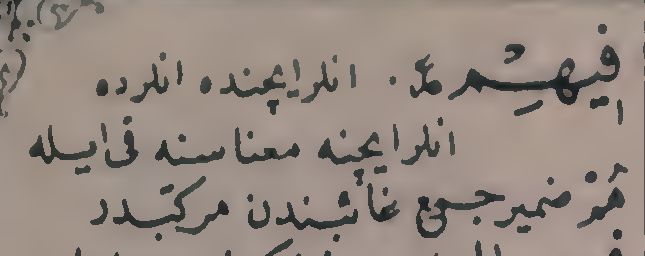 فِيهِمْ ع. انلر ایچنده انلرده
انلر ایچنه معناسنه فی ایله
هُمْ ضمیر جمع غائبندن مرکبدر